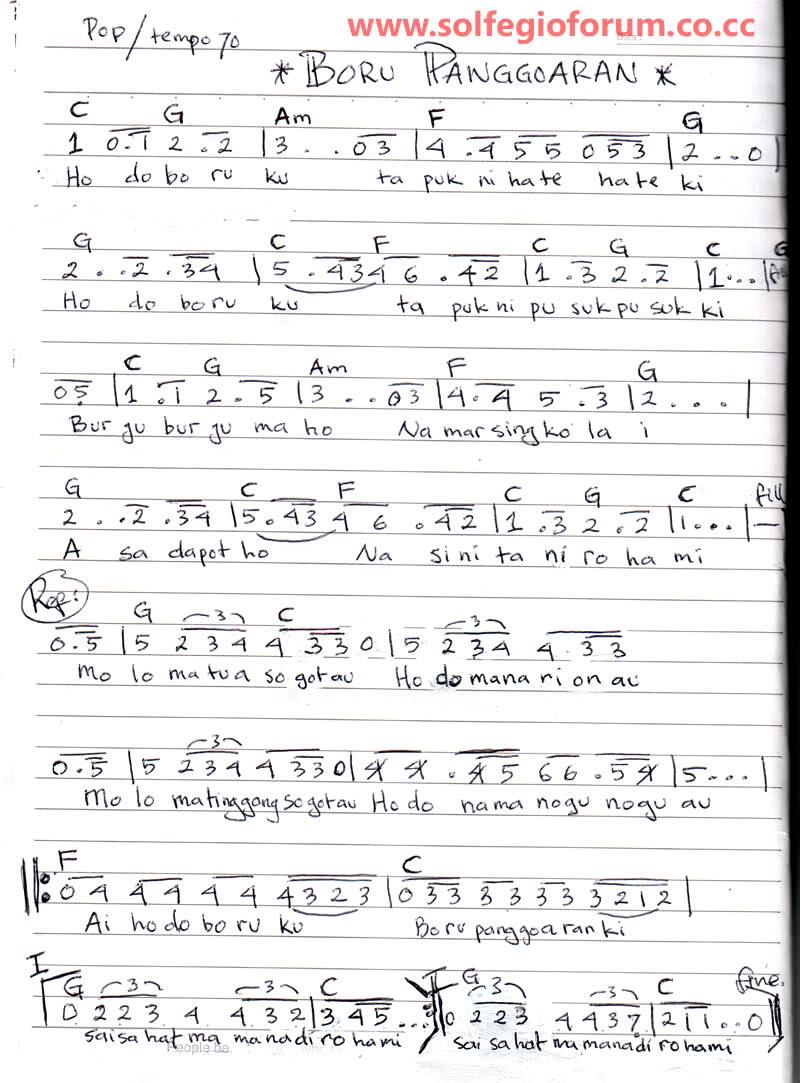 www.solfegioforum.co.cc
Pop / tempo 70
* BORU PANGGOARAN *
C G Am F G
1 0.1 2 .2 | 3 . .03 | 4 .4 5 5 053 | 2 . . 0 |
Ho do bo ru ku ta puk ni hate hate ki
G C F C G C G
2 . .2 .34 | 5 .43 4 6 .42 | 1 .3 2 .2 | 1 . . . |
Ho do boru ku ta puk ni pu suk pu suk ki
C G Am F G
05 | 1 .1 2 .5 | 3 . .03 | 4.4 5 .3 | 2 . . . |
Bur ju bur ju ma ho Na mar sing ko la i
G C F C G C fill
2 . .2 .34 | 5 .43 4 6 .42 | 1 .3 2 .2 | 1 . . . | —
A sa dapot ho Na si ni ta ni ro ha mi
Ref:
G 3 C 3
0.5 | 5 234 4 33 0 | 5 234 4.33
Mo lo ma tua so gotau Ho do mana ri on au
3
0.5 | 5 234 4330 | 4 4 .45 66 .54 | 5 . . . |
Mo lo matinggang so gotau Ho do nama nogu nogu au
F C
||: 04 44 44 4323 | 033 33 33 3212 |
Ai ho do bo ru ku Boru panggoaran ki
I G 3 3 C II G 3 3 C fine
0 223 4 432 | 345 . . . :|| 0 223 4 437 | 211 . . 0 ||
sai sa hat ma mana di ro hami sai sa hat ma mana di ro hami